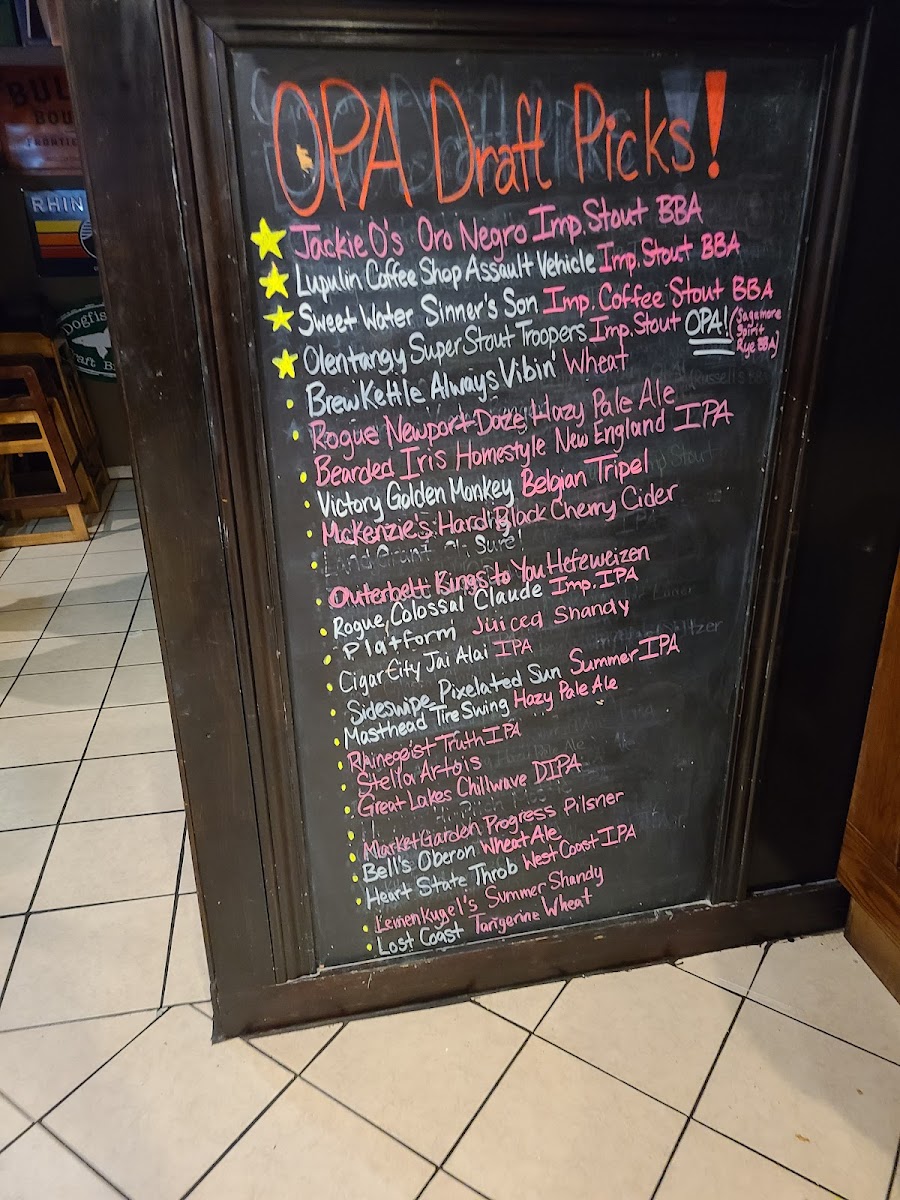 OPA Draft Picks!
Jackie O's Oro Negro Imp. Stout BBA
Lupulin Coffee Shop Assault Vehicle Imp. Stout BBA
Sweet Water Sinner's Son Imp. Coffee Stout BBA
Olentangy Super Stout Troopers Imp. Stout OPA! (Sagamore Spirit Rye BBA)
BrewKettle Always Vibin' Wheat
Rogue Newport Daze Hazy Pale Ale
Bearded Iris Homestyle New England IPA
Victory Golden Monkey Belgian Tripel
McKenzie's Hard Black Cherry Cider
Land Grant Oh Sure!
Outerbelt Kings to You Hefeweizen
Rogue Colossal Claude Imp. IPA
Platform Juiced Shandy
Cigar City Jai Alai IPA
Sideswipe Pixelated Sun Summer IPA
Masthead Tire Swing Hazy Pale Ale
Rhinegeist Truth IPA
Stella Artois
Great Lakes Chillwave DIPA
Market Garden Progress Pilsner
Bell's Oberon Wheat Ale
Heart State Throb West Coast IPA
Leinenkugel's Summer Shandy
Lost Coast Tangerine Wheat
BUL
BOU
FRONTIE
RHIN
Dogfis
raft B